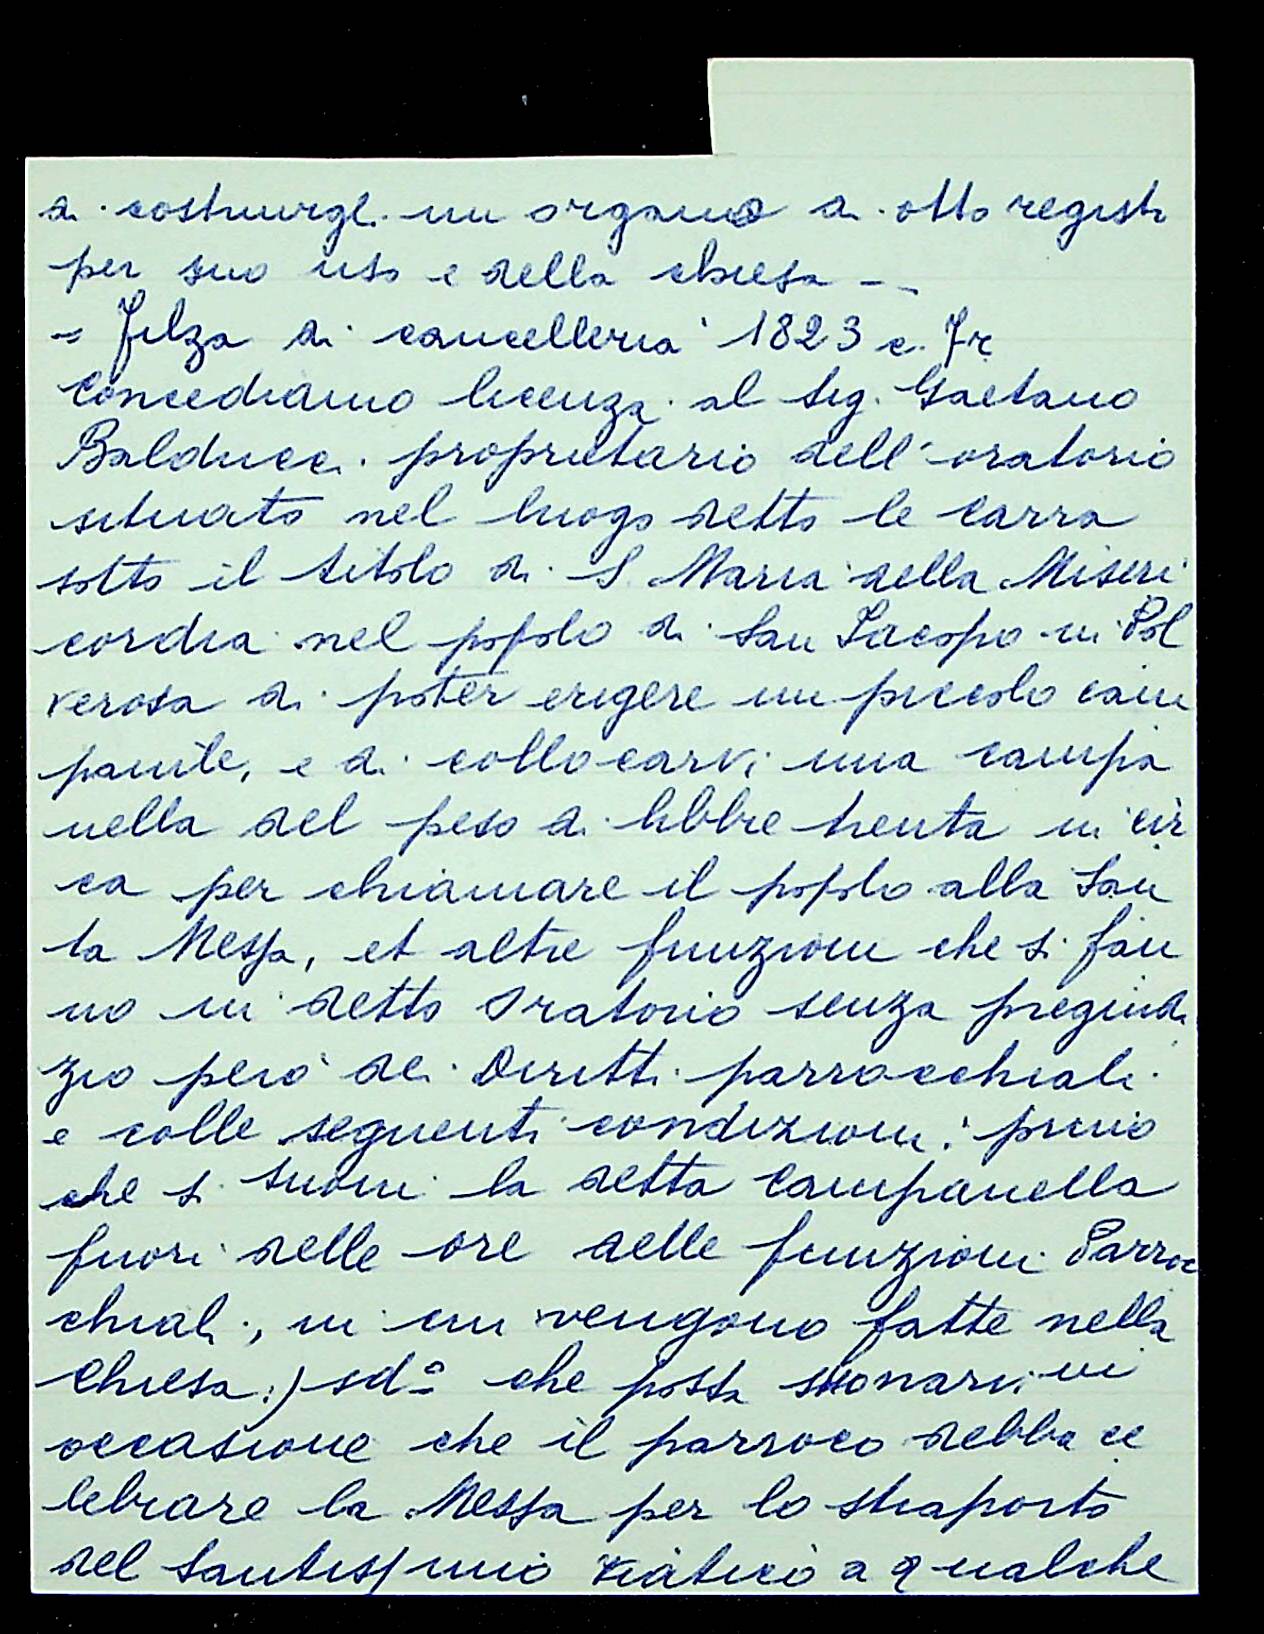 di costruirgli un organo di otto registri
per suo uso e della chiesa --
= Filza di cancelleria 1823 c. 7r
Concediamo licenza al Sig. Gaetano
Balducci proprietario dell'oratorio
situato nel luogo detto le Carra
sotto il titolo di S. Maria della Miseri
cordia nel popolo di San Iacopo in Pol
verosa di poter erigere un piccolo cam
panile, e di collocarvi una campa
nella del peso di libbre trenta in cir
ca per chiamare il popolo alla San
ta Messa, et altre funzioni che si fan
no in detto Oratorio senza pregiudi
zio però dei Diritti parrocchiali
e colle seguenti condizioni: primo
che si suoni la detta Campanella
fuori delle ore delle funzioni Parroc
chiali, in cui vengono fatte nella
Chiesa:) sd° che possa suonarsi in
occasione che il parroco debba ce
lebrare la Messa per lo straporto
del Santissimo Viatico a qualche